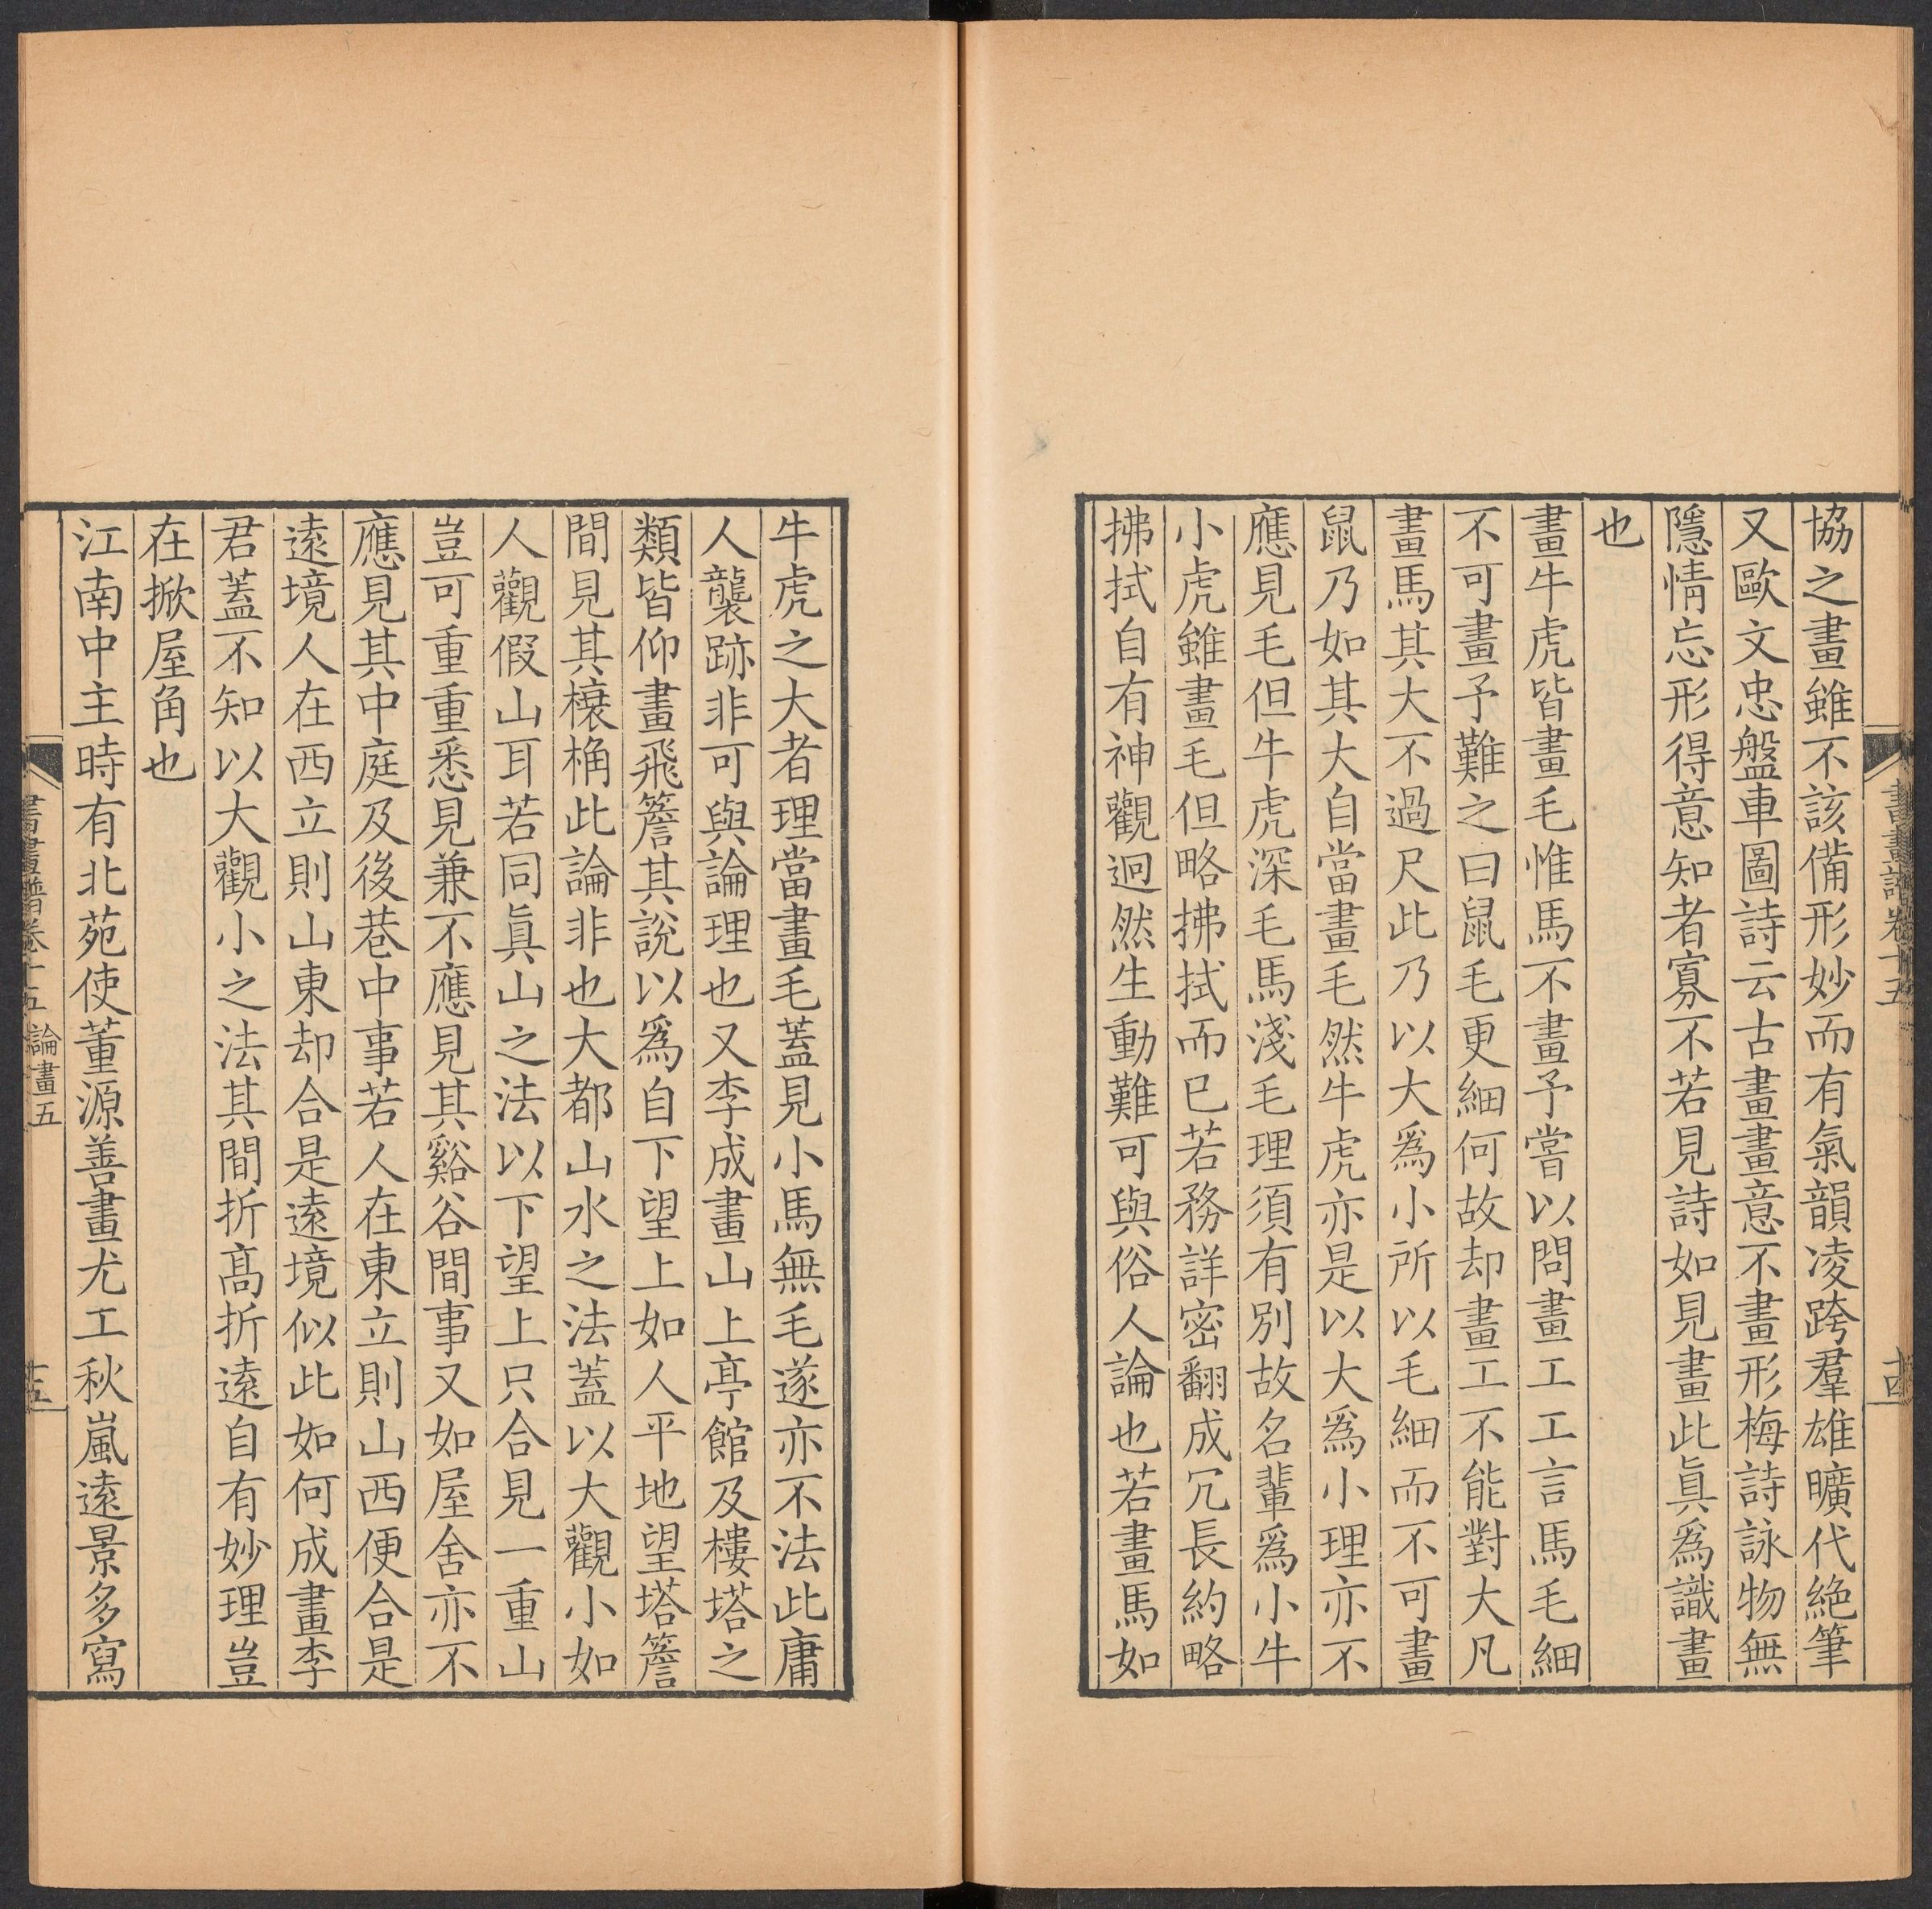 書畫譜卷十五
十四
協之畫雖不該備形妙而有氣韻凌跨羣雄曠代絶筆
又歐文忠盤車圖詩云古畫畫意不畫形梅詩詠物無
隱情忘形得意知者寡不若見詩如見畫此眞爲識畫
也
畫牛虎皆畫毛惟馬不畫予嘗以問畫工工言馬毛細
不可畫予難之曰鼠毛更細何故却畫工不能對大凡
畫馬其大不過尺此乃以大爲小所以毛細而不可畫
鼠乃如其大自當畫毛然牛虎亦是以大爲小理亦不
應見毛但牛虎深毛馬淺毛理須有別故名輩爲小牛
小虎雖畫毛但略拂拭而已若務詳密翻成冗長約略
拂拭自有神觀迥然生動難可與俗人論也若畫馬如
牛虎之大者理當畫毛蓋見小馬無毛遂亦不法此庸
人襲跡非可與論理也又李成畫山上亭館及樓塔之
類皆仰畫飛簷其說以爲自下望上如人平地望塔簷
間見其榱桷此論非也大都山水之法蓋以大觀小如
人觀假山耳若同眞山之法以下望上只合見一重山
豈可重重悉見兼不應見其谿谷間事又如屋舍亦不
應見其中庭及後巷中事若人在東立則山西便合是
遠境人在西立則山東却合是遠境似此如何成畫李
君蓋不知以大觀小之法其間折高折遠自有妙理豈
在掀屋角也
江南中主時有北苑使董源善畫尤工秋嵐遠景多寫
書畫譜卷十五 論畫五
十五